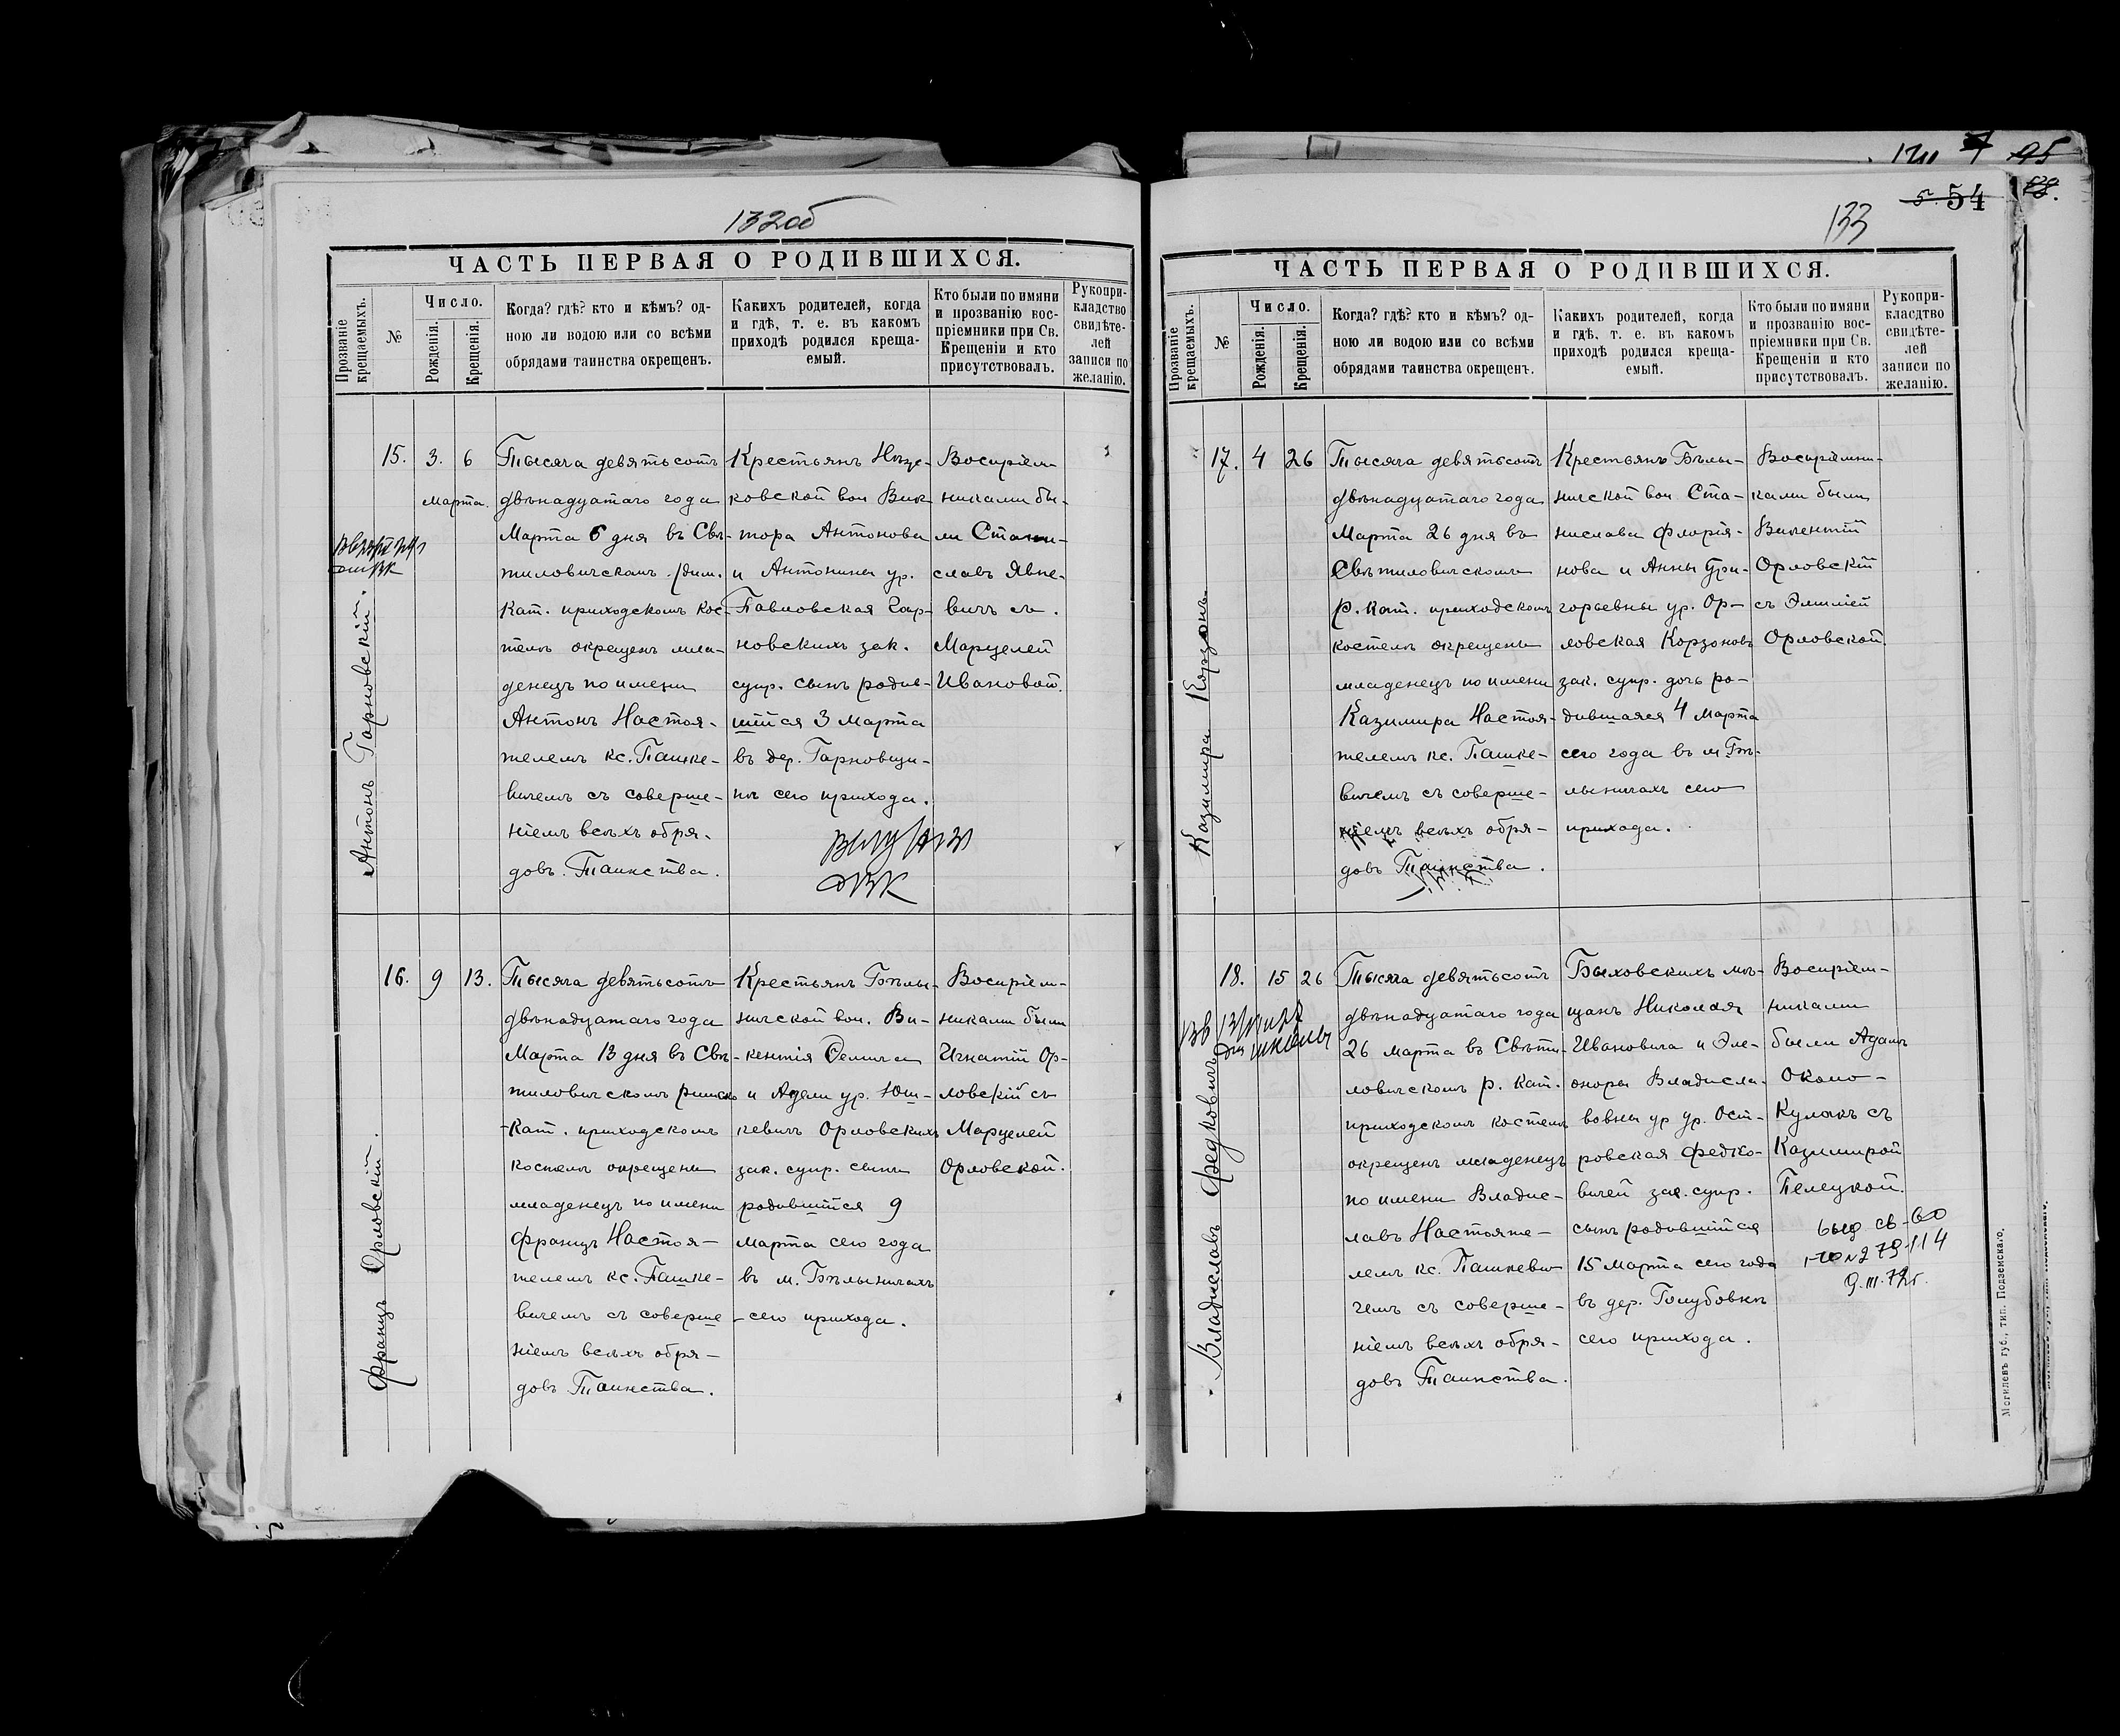 132об
ЧАСТЬ ПЕРВАЯ О РОДИВШИХСЯ.
Прозваніе крещаемыхъ.
№
Число.
Рожденія.
Крещенія.
Когда? гдѣ? кто и кѣмъ? од-
ною ли водою или со всѣми
обрядами таинства окрещенъ.
Какихъ родителей, когда
и гдѣ, т. е. въ какомъ
приходѣ родился креща-
емый.
Кто были по имяни
и прозванію вос-
пріемники при Св.
Крещеніи и кто
присутствовалъ.
Рукопри-
кладство
свидѣте-
лей
записи по
желанію.
Антонъ Гарновскій.
15.
3.
6
Марта.
Тысяча девятьсотъ
двѣнадцатаго года
Марта 6 дня въ Свѣ-
тиловичскомъ
Кат. приходскомъ кос-
телѣ окрещенъ мла-
денецъ по имени
Антонъ Настоя-
телемъ кс. Пашке-
вичемъ съ соверше-
ніемъ всѣхъ обря-
довъ Таинства.
Крестьянъ
ковской вол Вик-
тора Антонова
и Антонины ур.
Павловская Гар-
новскихъ зак.
супр. сынъ родив-
шійся 3 Марта
въ дер. Гарновщи-
нѣ сего прихода.
Воспріем-
никами бы-
ли Стани-
славъ Явне-
вичъ съ
Марцелей
Ивановой.
Францъ Орловскій.
16.
9
13.
Тысяча девятьсотъ
двѣнадцатаго года
Марта 13 дня въ Свѣ-
тиловичскомъ римско
-Кат. приходскомъ
костелѣ окрещенъ
младенецъ по имени
Францъ Настоя-
телемъ кс. Пашке-
вичемъ съ соверше
ніемъ всѣхъ обря-
довъ Таинства.
Крестьянъ Бѣлы-
ничской вол. Ви-
кентія
и Адели ур. Юш-
кевичъ Орловскихъ
зак. супр. сынъ
родившійся 9
Марта сего года
въ м. Бѣлыничахъ
сего прихода.
Воспріем-
никами были
Игнатій Ор-
ловскій съ
Марцелей
Орловской.
133
54
ЧАСТЬ ПЕРВАЯ О РОДИВШИХСЯ.
Прозваніе крещаемыхъ.
№
Число.
Рожденія.
Крещенія.
Когда? гдѣ? кто и кѣмъ? од-
ною ли водою или со всѣми
обрядами таинства окрещенъ.
Какихъ родителей, когда
и гдѣ, т. е. въ какомъ
приходѣ родился креща-
емый.
Кто были по имяни
и прозванію вос-
пріемники при Св.
Крещеніи и кто
присутствовалъ.
Рукопри-
класдтво
свидѣте-
лей
записи по
желанію.
Казимира Корзонъ.
17.
4
26
Тысяча девятьсотъ
двѣнадцатаго года
Марта 26 дня въ
Свѣтиловичскомъ
р. Кат. приходскомъ
костелѣ окрещенъ
младенецъ по имени
Казимира Настоя-
телемъ кс. Пашке-
вичемъ съ соверше-
ніемъ всѣхъ обря-
довъ Таинства.
Крестьянъ Бѣлы-
ничской вол. Ста-
нислава Флорія-
нова и Анны Гри-
горьевны ур. Ор-
ловская Корзоновъ
зак. супр. дочь ро-
дившаяся 4 Марта
сего года въ м Бѣ-
лыничахъ сего
прихода.
Воспріемни-
ками были
Викентій
Орловскій
съ Эмиліей
Орловской.
Владиславъ Федковичъ
18.
15
26
Тысяча девятьсотъ
двѣнадцатаго года
26 Марта въ Свѣти-
ловичскомъ р. Кат.
приходскомъ костелѣ
окрещенъ младенецъ
по имени Владис-
лавъ Настояте-
лемъ кс. Пашкеви
чемъ съ соверше-
ніемъ всѣхъ обря-
довъ Таинства.
Быховскихъ мѣ-
щанъ Николая
Ивановича и Эле-
оноры Владисла-
вовны ур ур. Ост-
ровская Федко-
вичей зак. супр.
сынъ родившійся
15 Марта сего года
въ дер. Голубовкѣ
сего прихода.
Воспріем-
никами
были Адамъ
Около-
Кулакъ съ
Казимирой
Пелецкой.
9.III.72г.
Могилевъ губ., тип. Подземскаго.